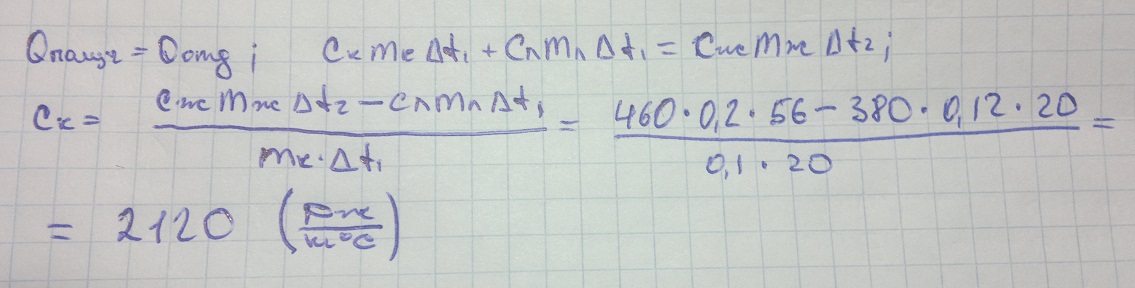 Qполуч = Qотд ; Cк mк Δt₁ + Cл mл Δt₁ = Cж mж Δt₂ ;
Cк = (Cж mж Δt₂ − Cл mл Δt₁) / (mк · Δt₁) = (460 · 0,2 · 56 − 380 · 0,12 · 20) / (0,1 · 20) =
= 2120 (Дж / кг°C)